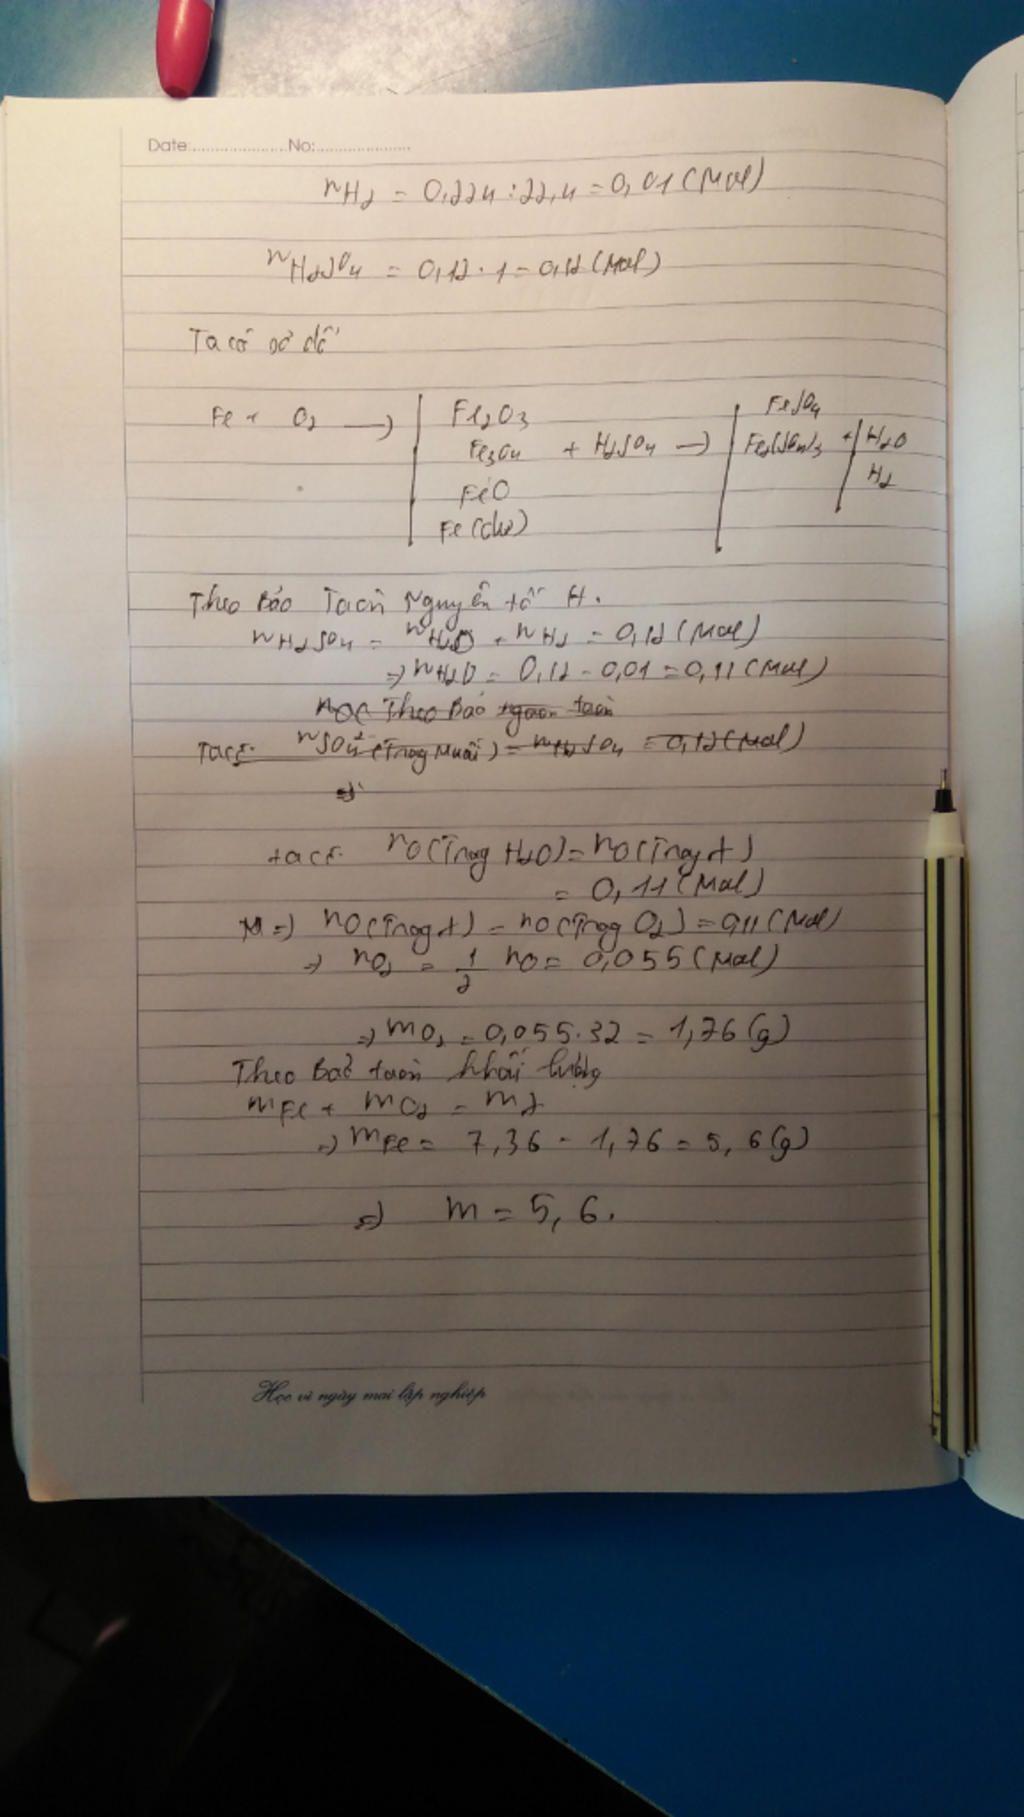 Date:..................... No:.....................
nH2 = 0,224 : 22,4 = 0,01 (Mol)
nH2SO4 = 0,12 . 1 = 0,12 (Mol)
Ta có sơ đồ
Fe + O2 → Fe2O3 FeSO4
Fe3O4 + H2SO4 → Fe2(SO4)3 + H2O
FeO H2
Fe (dư)
Theo Bảo Toàn Nguyên tố H.
nH2SO4 = nH2O + nH2 = 0,12 (Mol)
=> nH2O = 0,12 - 0,01 = 0,11 (Mol)
Theo Bảo toàn
Ta có nSO4 (Trong Muối) = nH2SO4 = 0,12 (Mol)
=>
ta có nO (Trong H2O) = nO (Trong X)
= 0,11 (Mol)
=> nO (Trong X) = nO (Trong O2) = 0,11 (Mol)
=> nO2 = 1/2 nO = 0,055 (Mol)
=> mO2 = 0,055 . 32 = 1,76 (g)
Theo Bảo toàn khối lượng
mFe + mO2 = mX
=> mFe = 7,36 - 1,76 = 5,6 (g)
=> m = 5,6.
Học vì ngày mai lập nghiệp